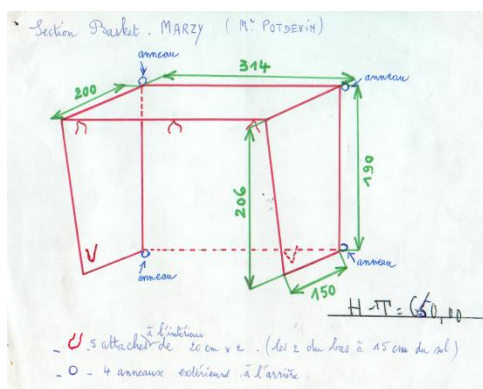 Section Basket. MARZY (Mr POTDEVIN)
anneau
314
anneau
200
206
190
anneau
anneau
150
H-T = 650,00
à l'intérieur
- 5 attaches de 20 cm x 2. (les 2 du bas à 15 cm du sol)
- O - 4 anneaux extérieurs à l'arrière.